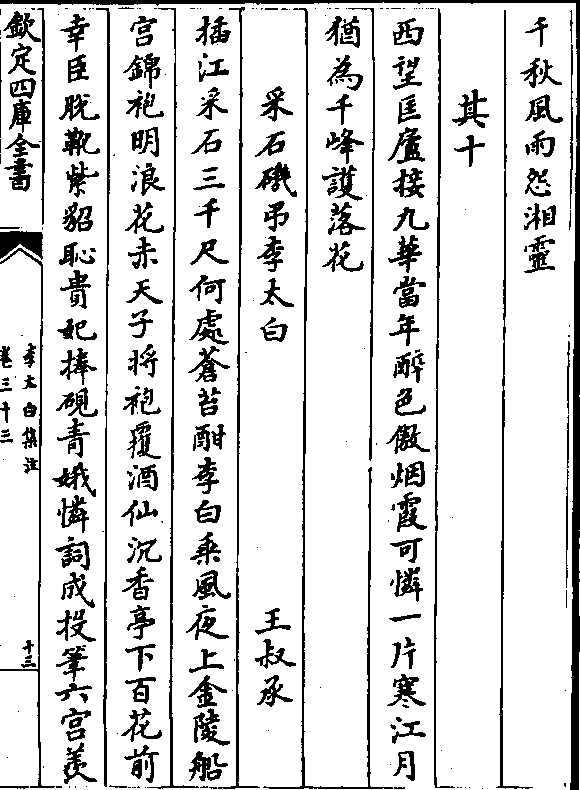 千秋風雨怨湘靈
其十
西望匡廬接九華當年醉色傲烟霞可憐一片寒江月
猶為千峰護落花
采石磯弔李太白 王叔承
插江采石三千尺何處蒼苔酣李白乗風夜上金陵船
宮錦袍明浪花赤天子將袍覆酒仙沉香亭下百花前
幸臣脱靴紫貂恥貴妃捧硯青娥憐詞成投筆六宮羨
欽定四庫全書
李太白集注
卷三十三
十三